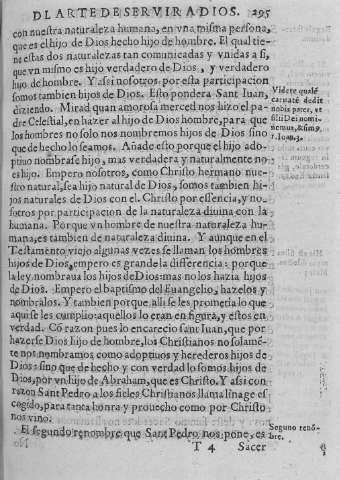 DL ARTE DE SERVIR A DIOS. 295
con nuestra naturaleza humana, en vna misma persona,
que es el hijo de Dios hecho hijo de hombre. El qual tie-
ne estas dos naturalezas tan comunicadas y vnidas a si,
que vn mismo es hijo verdadero de Dios, y verdadero
hijo de hombre. Y assi nosotros por esta participacion
somos tambien hijos de Dios. Esto pondera Sant Iuan,
diziendo. Mirad quan amorosa merced nos hizo el pa-
dre Celestial, en hazer al hijo de Dios hombre, para que
los hombres no solo nos nombremos hijos de Dios sino
que de hecho lo seamos. Añade esto porque el hijo ado-
ptiuo nombrase hijo, mas verdadera y naturalmente no
es hijo. Empero nosotros, como Christo hermano nue-
stro natural, sea hijo natural de Dios, somos tambien hi-
jos naturales de Dios con el. Christo por essencia, y no-
sotros por participacion de la naturaleza diuina con la
humana. Porque vn hombre de nuestra naturaleza hu-
mana, es tambien de naturaleza diuina. Y aunque en el
Testamento viejo algunas vezes se llaman los hombres
hijos de Dios, empero es grande la differencia: porque
la ley nombraua los hijos de Dios: mas no los hazia hijos
de Dios. Empero el baptismo del Euangelio, hazelos y
nombralos. Y tambien porque alli se les prometia lo que
aqui se les cumplio: aquellos lo eran en figura, y estos en
verdad. Cō razon pues lo encarecio sant Iuan, que por
hazerse Dios hijo de hombre, los Christianos no solamē-
te nos nombramos como adoptiuos y herederos hijos de
Dios: sino que de hecho y con verdad lo somos hijos de
Dios, por vn hijo de Abraham, que es Christo. Y assi con
razon Sant Pedro a los fieles Christianos llama linage es-
cogido, para tanta honra y prouecho como por Christo
nos vino.
El segundo renombre que Sant Pedro nos pone, es
T 4 Sacer
Videte qualē
caritatē dedit
nobis pater, et
filii Dei nomi
nemur, & simus.
1. Ioan. 3.
Segundo renō-
bre.